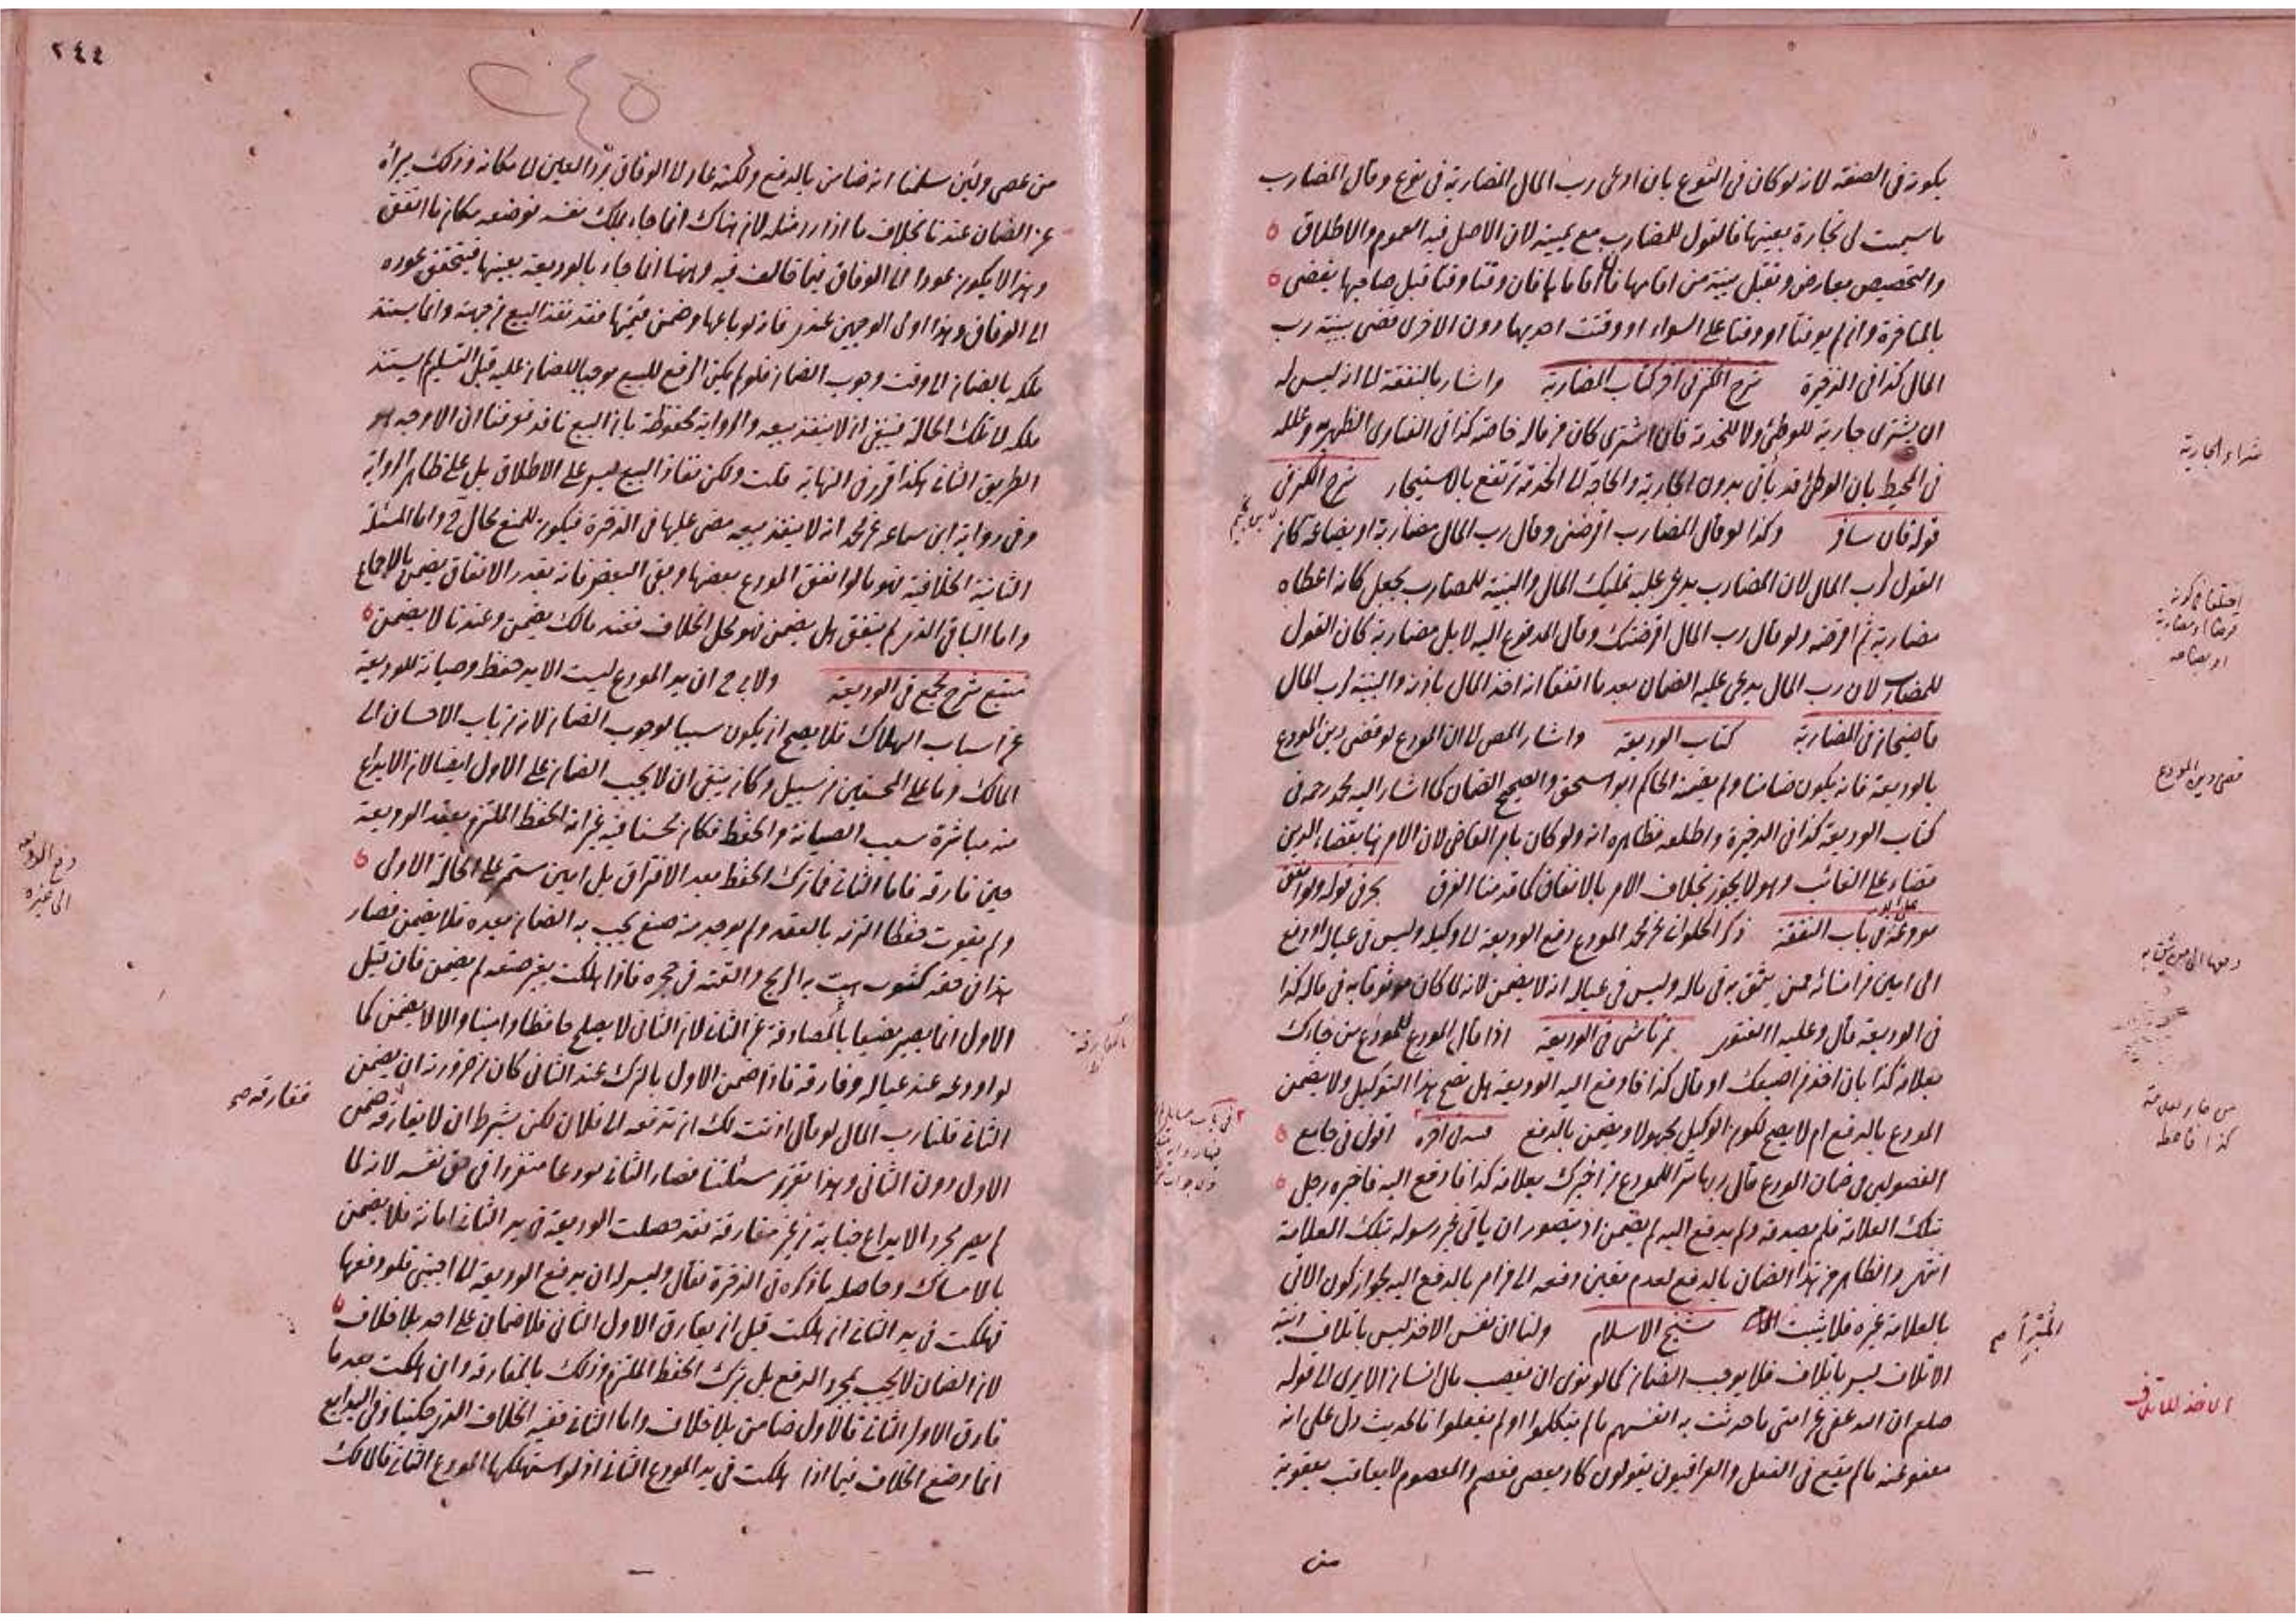 يكون في الصفة لانه لو كان في النوع بان ادعى رب المال المضاربة في نوع وقال المضارب
ما سميت لي تجارة بعينها فالقول للمضارب مع يمينه لان الاصل فيه العموم والاطلاق
والتخصيص بعارض وتقبل بينة من اقامها فان اقاما فان وقتا وقتا قبل صاحبها يقضى
بالمتاخرة وان لم يوقتا او وقتا على السواء او وقتت احديهما دون الاخرى قضى ببينة رب
المال كذا في الذخيرة شرح الكنز في اخر كتاب المضاربة واشار بالنفقة الى انه ليس له
ان يشتري جارية للوطئ ولا للخدمة فان اشترى كان من ماله خاصة كذا في الفتاوى الظهيرية وعلله
في المحيط بان الوطئ قد يأتي بدون الجارية والحاجة الى الخدمة ترتفع بالاستيجار شرح الكنز في
قوله فان سافر وكذا لو قال المضارب اقرضتني وقال رب المال مضاربة او بضاعة كان
القول لرب المال لان المضارب يدعي عليه تمليك المال والبينة للمضارب يجعل كانه اعطاه
مضاربة ثم اقرضه ولو قال رب المال اقرضتك وقال المدفوع اليه لا بل مضاربة كان القول
للمضارب لان رب المال يدعي عليه الضمان بعد ما اتفقا انه اخذ المال باذنه والبينة لرب المال
قاضيخان في المضاربة كتاب الوديعة واشار المص الى ان المودع لو قضى دين المودع
بالوديعة فانه يكون ضامنا ولم يضمنه الحاكم ابو اسحق والصحيح الضمان كما اشار اليه محمد رحمه في
كتاب الوديعة كذا في الذخيرة واطلقه فظاهره انه ولو كان بامر القاضي لان الامر بها بقضاء الدين
قضاء على الغائب وهو لا يجوز بخلاف الامر بالانفاق كما قدمنا الفرق بحر في قوله ولو انفق
مودعه في باب النفقة ذكر الحلواني عن محمد المودع دفع الوديعة الى وكيله وليس في عياله او دفع
الى امين من امنائه ممن يثق به في ماله وليس في عياله انه لا يضمن لانه لما كان موثوقا به في ماله كذا
في الوديعة قال وعليه الفتوى تمرتاشي في الوديعة اذا قال المودع للمودع من جاءك
بعلامة كذا بان اخذ من اصبعك او قال كذا فادفع اليه الوديعة هل يصح هذا التوكيل ولا يضمن
المودع بالدفع ام لا يصح لكون الوكيل مجهولا ويضمن بالدفع اقول في جامع
الفصولين في ضمان المودع قال ربها سرا للمودع من اخبرك بعلامة كذا فادفع اليه فاخبره رجل
بتلك العلامة فلم يصدقه ولم يدفع اليه لم يضمن اذ يتصور ان يأتي غير رسوله بتلك العلامة
انتهى والظاهر من هذا الضمان بالدفع لعدم تعين دفعه الى من ام بالدفع اليه لجواز كون الاتي
بالعلامة غيره فلا يثبت شيخ الاسلام ولنا ان نفس الاخذ ليس باتلاف نية
الاتلاف ليس باتلاف فلا يوجب الضمان كما لو نوى ان يغصب مال انسان الا يرى الى قوله
صلعم ان الله عفى عن امتي ما حدثت به انفسهم ما لم يتكلموا او لم يفعلوا فالحديث دل على انه
معفو عنه ما لم يقع في الفعل والعراقيون يقولون كاد يعصي فعصم والمعصوم لا يعاقب بعقوبة
من
شراء الجارية
اختلفا في كونه
قرضا او مضاربة
او بضاعة
قضى دين المودع
دفعها الى من يثق به
من جاء بعلامة
كذا فاعطه
الاخذ للاتلاف
٢٤٤
٢٤٥
من عصى ولئن سلمنا انه ضامن بالدفع ولكنه عاد الى الوفاق برد العين الى مكانه وذلك يبرأه
عن الضمان عندنا بخلاف ما اذا رد مثله لان هناك انما جاء بملك نفسه فوضعه مكان ما انفق
وهذا لا يكون عودا الى الوفاق فيما خالف فيه وههنا انما جاء بالوديعة بعينها فيتحقق عوده
الى الوفاق وهذا اولى الوجهين عندي فانه لو باعها وضمن قيمتها فقد نفذ البيع من جهته وانما يستند
ملكه بالضمان الى وقت وجوب الضمان فلو لم يكن الرفع للبيع موجبا للضمان عليه قبل التسليم لم يستند
ملكه الى تلك الحالة فينبغي ان لا ينفذ بيعه والرواية محفوظة بان البيع نافذ فعرفنا ان الاوجه هو
الطريق الثاني هكذا قرر في النهاية قلت ولكن نفاذ البيع ليس على الاطلاق بل على ظاهر الرواية
وفي رواية ابن سماعة عن محمد انه لا ينفذ بيعه نص عليها في الذخيرة فيكون للمنع مجال ح واما المسئلة
الثانية الخلافية فهو ما لو انفق المودع بعضها وبقي البعض فانه بقدر الانفاق يضمن بالاجماع
واما الباقي الذي لم ينفق هل يضمن فهو محل الخلاف فعند مالك يضمن وعندنا لا يضمن
منبع شرح مجمع في الوديعة ولابي ح ان يد المودع ليست الا يد حفظ وصيانة للوديعة
عن اسباب الهلاك فلا يصح ان يكون سببا لوجوب الضمان لانه من باب الاحسان الى
المالك وما على المحسنين من سبيل وكان ينبغي ان لا يجب الضمان على الاول ايضا لان الايداع
منه مباشرة سبب الصيانة والحفظ فكان محسنا فيه غير انه الحفظ الملتزم بعقد الوديعة
حين فارقه فاما الثاني فما ترك الحفظ بعد الافتراق بل امين مستمر على الحالة الاولى
ولم يفوت حفظا التزمه بالعقد ولم يوجد منه صنع يجب به الضمان بعده فلا يضمن فصار
هذا في حقه كثوب هبت به الريح والقته في حجره فاذا هلكت بغير صنعه لم يضمن فان قيل
الاول انما يصير مضيعا بالمفارقة عن الثاني لان الثاني لا يصلح حافظا وامينا والا لا يضمن كما
لو اودعه عند عياله وفارقه فاذا ضمن الاول بالترك عند الثاني كان من ضرورته ان يضمن
الثاني قلنا رب المال لو قال اذنت لك ان تدفعه الى فلان لكن بشرط ان لا يفارقه ضمن
الاول دون الثاني وهذا تقرير مسئلتنا فصار الثاني مودعا منفردا في حق نفسه لانه لما
لم يصر مجرد الايداع جناية من غير مفارقة فقد حصلت الوديعة في يد الثاني امانة فلا يضمن
بالامساك وحاصله ما ذكره في الذخيرة فقال وليس له ان يدفع الوديعة الى اجنبي فلو دفعها
فهلكت في يد الثاني ان هلكت قبل ان يفارق الاول الثاني فلا ضمان على احد بلا خلاف
لان الضمان لا يجب بمجرد الدفع بل بترك الحفظ الملتزم وذلك بالمفارقة وان هلكت بعد ما
فارق الاول الثاني فالاول ضامن بلا خلاف واما الثاني ففيه الخلاف الذي حكينا وفي البدايع
انما وضع الخلاف فيما اذا هلكت في يد المودع الثاني اذ لو استهلكها المودع الثاني فالمالك
دفع المودع
الى غيره
مفارقه صح